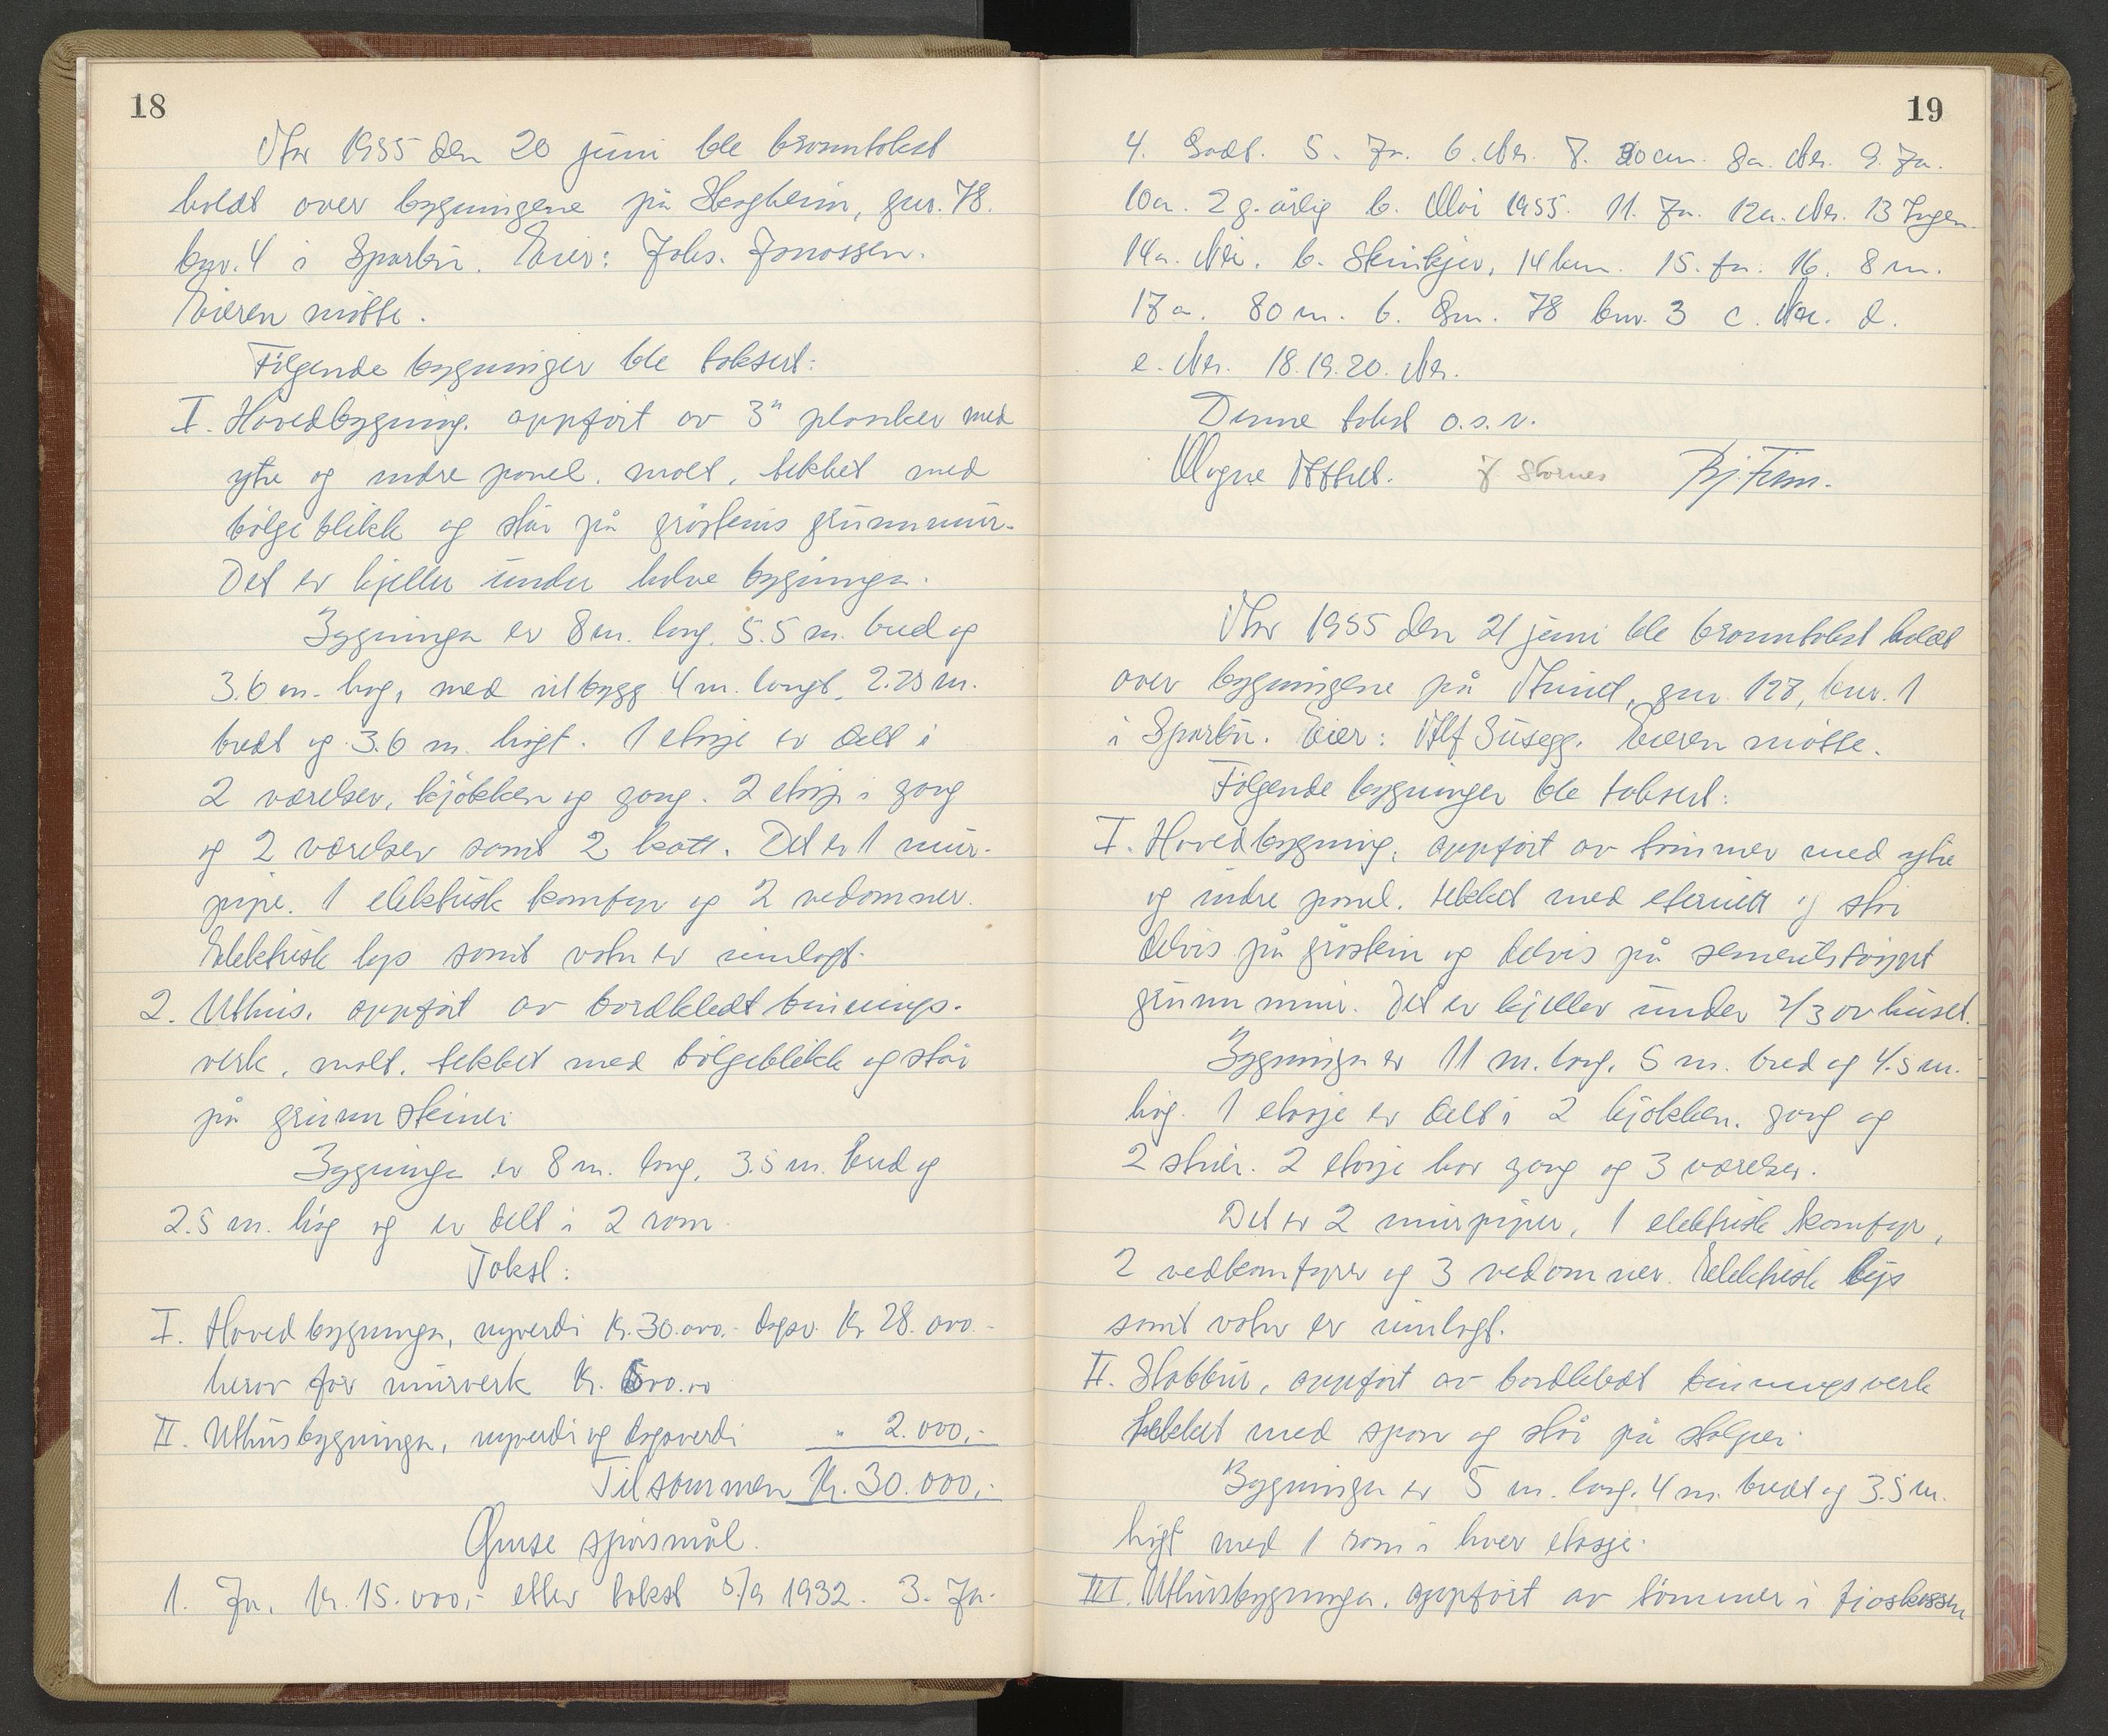 18
År 1955 den 20 juni ble branntakst
holdt over bygningene på Skogheim, gnr. 78.
bnr. 4 i Sparbu. Eier: Johs. Jonassen.
Eieren møtte.
Følgende bygninger ble taksert:
I. Hovedbygning. oppført av 3" planker med
ytre og indre panel. malt, tekket med
bølgeblikk og står på gråsteins grunnmur.
Det er kjeller under halve bygninga.
Bygninga er 8 m. lang, 5.5 m. bred og
3.6 m. høg, med utbygg 4 m. langt, 2.25 m.
bredt og 3.6 m. høgt. 1 etasje er delt i
2 værelser, kjøkken og gang. 2 etasje i gang
og 2 værelser samt 2 kott. Det er 1 mur-
pipe. 1 elektrisk komfyr og 2 vedomner.
Elektrisk lys samt vatn er innlagt.
2. Uthus, oppført av bordkledt binnings-
verk, malt, tekket med bølgeblikk og står
på grunnsteiner
Bygninga er 8 m. lang, 3.5 m. bred og
2.5 m. høg og er delt i 2 rom.
Takst:
I. Hovedbygninga, nyverdi kr. 30.000.- dagsv. Kr 28.000.-
herav for murverk Kr. 00.00
II. Uthusbygninga, nyverdi og dagsverdi " 2.000,-
Tilsammen Kr. 30.000,-
Gmse spørsmål.
1. Ja. kr. 15.000,- etter takst 5/9 1932. 3. Ja.
19
4. Godt. 5. Ja. 6. Nei. 7. 20 cm. 8a. Nei. 9. Ja.
10a. 2 g. årlig b. Mai 1955. 11. Ja. 12a. Nei. 13 Ingen.
14a. Nei. b. Steinkjer, 14 km. 15. Ja. 16. 8 m.
17a. 80 m. b. Gnr. 78 bnr. 3 c. Nei. d.
e. Nei. 18. 19. 20. Nei.
Denne takst o.s.v.
Magne J Stornes Bj. Finn.
År 1955 den 21 juni ble branntakst holdt
over bygningene på gnr. 127, bnr. 1
i Sparbu. Eier: Alf Susegg. Eieren møtte.
Følgende bygninger ble taksert:
I. Hovedbygning, oppført av tømmer med ytre
og indre panel. tekket med eternitt og står
delvis på gråstein og delvis på sementstøypt
grunnmur. Det er kjeller under 2/3 av huset.
Bygninga er 11 m. lang, 5 m. bred og 4.5 m.
høg. 1 etasje er delt i 2 kjøkken, gang og
2 stuer. 2 etasje har gang og 3 værelser.
Det er 2 murpiper, 1 elektrisk komfyr,
2 vedkomfyrer og 3 vedomner. Elektrisk lys
samt vatn er innlagt.
II. Stabbur, oppført av bordkledt binningsverk
tekket med spon og står på stolper.
Bygninga er 5 m. lang, 4 m. bredt og 3.5 m.
høgt med 1 rom i hver etasje.
III. Uthusbygninga, oppført av tømmer i fjøskassen